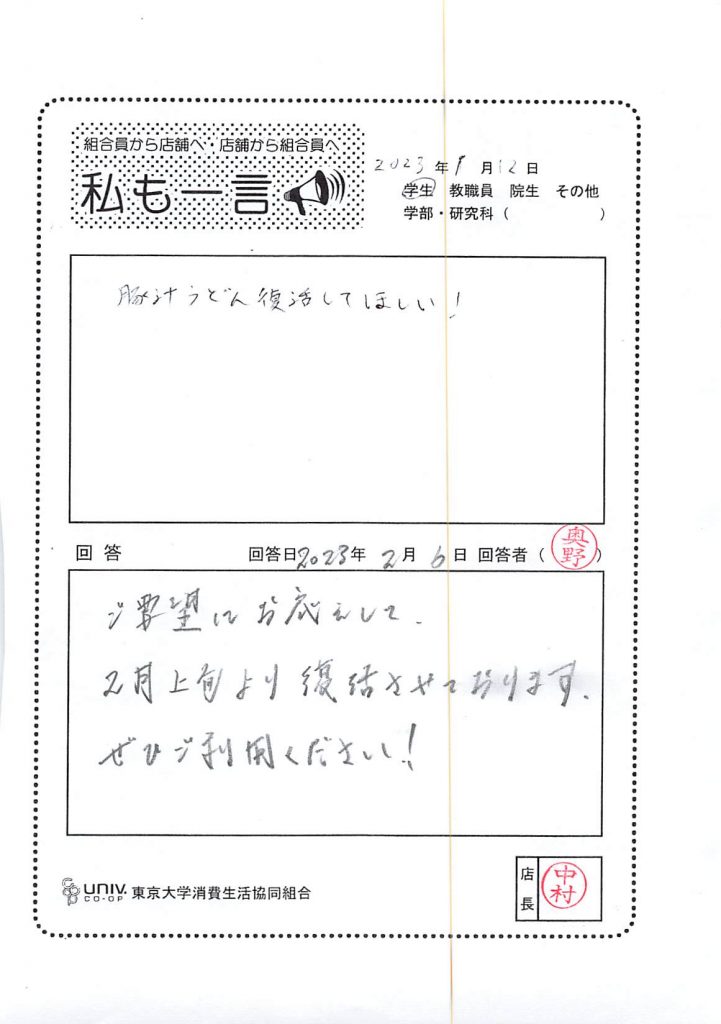 組合員から店舗へ・店舗から組合員へ
私も一言
2023年1月12日
学生 教職員 院生 その他
学部・研究科( )
豚汁うどん復活してほしい!
回答 回答日2023年2月6日 回答者(奥野)
ご要望にお応えして、
2月上旬より復活させております。
ぜひご利用ください!
店長 中村
CO-OP UNIV. CO-OP 東京大学消費生活協同組合